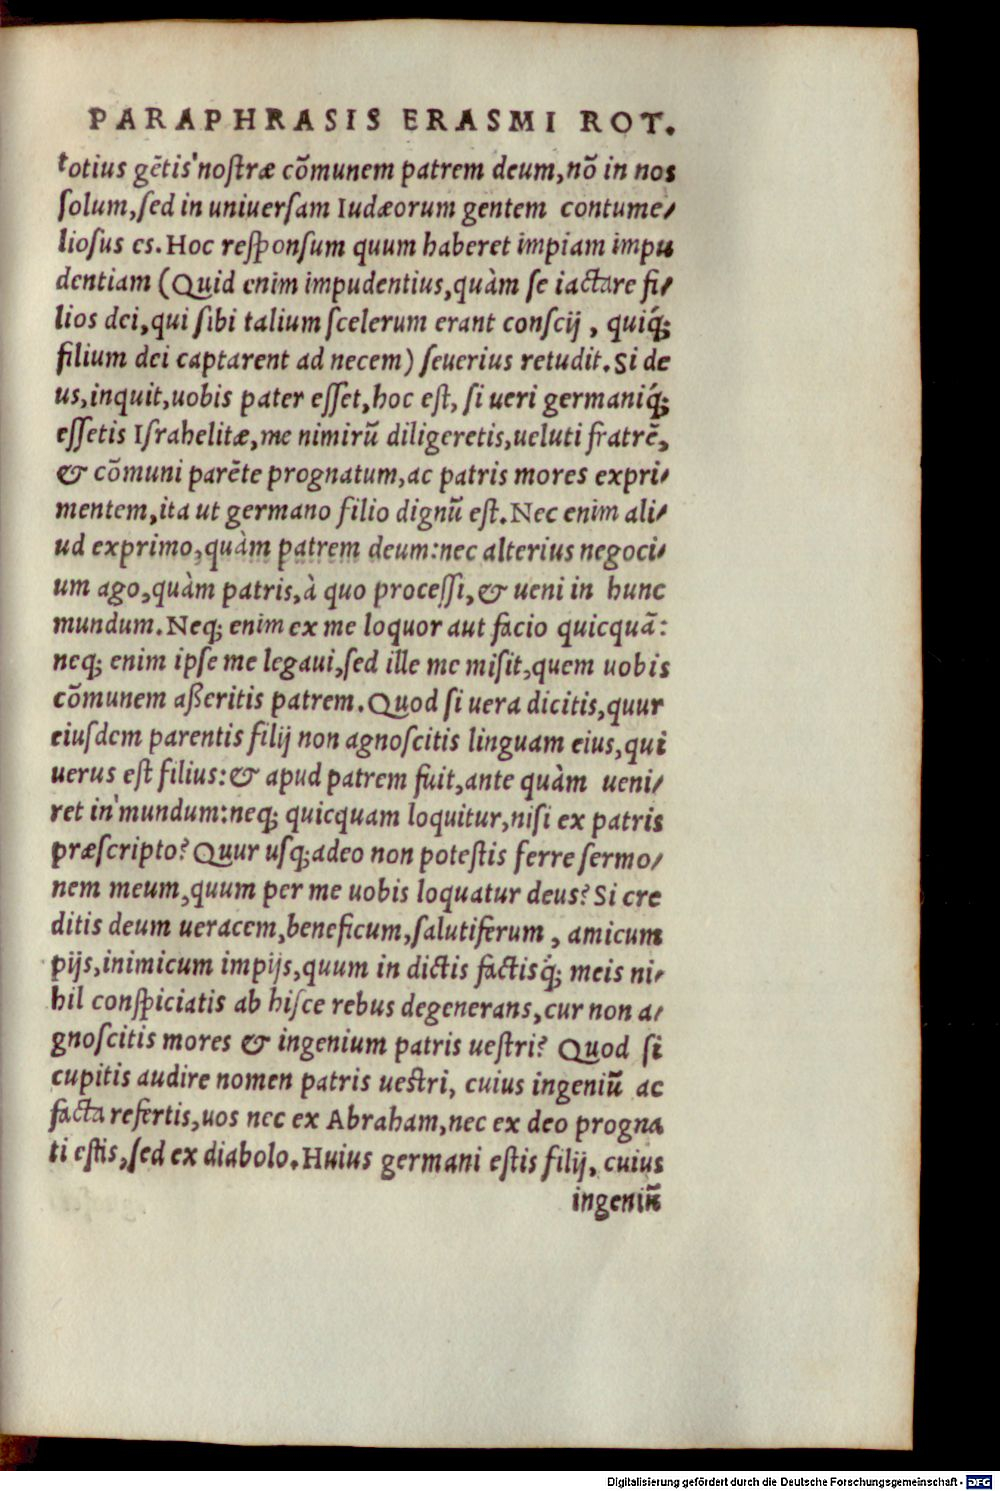 PARAPHRASIS ERASMI ROT.
totius gẽtis nostræ cõmunem patrem deum, nõ in nos
ſolum, ſed in uniuerſam Iudæorum gentem contume⸗
lioſus es. Hoc reſponſum quum haberet impiam impu
dentiam (Quid enim impudentius, quàm ſe iactare fi⸗
lios dei, qui ſibi talium ſcelerum erant conſcij, quiq́;
filium dei captarent ad necem) ſeuerius retudit. Si de
us, inquit, uobis pater eſſet, hoc eſt, ſi ueri germaniq́;
eſſetis Iſrahelitæ, me nimirũ diligeretis, ueluti fratrẽ,
& cõmuni parẽte prognatum, ac patris mores expri⸗
mentem, ita ut germano filio dignũ eſt. Nec enim ali⸗
ud exprimo, quàm patrem deum: nec alterius negoci⸗
um ago, quàm patris, à quo proceſſi, & ueni in hunc
mundum. Neq; enim ex me loquor aut facio quicquã:
neq; enim ipſe me legaui, ſed ille me miſit, quem uobis
cõmunem aßeritis patrem. Quod ſi uera dicitis, quur
eiuſdem parentis filij non agnoſcitis linguam eius, qui
uerus eſt filius: & apud patrem fuit, ante quàm ueni⸗
ret in mundum: neq; quicquam loquitur, niſi ex patris
præſcripto? Quur uſq;adeo non poteſtis ferre ſermo⸗
nem meum, quum per me uobis loquatur deus? Si cre
ditis deum ueracem, beneficum, ſalutiferum, amicum
pijs, inimicum impijs, quum in dictis factisq́; meis ni⸗
hil conſpiciatis ab hiſce rebus degenerans, cur non a⸗
gnoſcitis mores & ingenium patris ueſtri? Quod ſi
cupitis audire nomen patris ueſtri, cuius ingeniũ ac
facta refertis, uos nec ex Abraham, nec ex deo progna
ti eſtis, ſed ex diabolo. Huius germani eſtis filij, cuius
ingeniũ
Digitalisierung gefördert durch die Deutsche Forschungsgemeinschaft - DFG